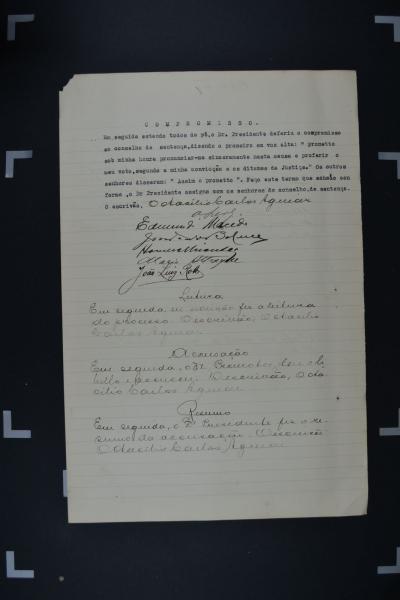 COMPROMISSO.
Em seguida estando todos de pé, o Dr. Presidente deferiu o compromisso
ao conselho de sentença, dizendo o primeiro em voz alta: " prometto
sob minha honra pronunciar-me sinceramente nesta causa e proferir o
meu voto, segundo a minha convicção e os ditames da Justiça." Os outros
senhores disseram: " Assim o prometto ". Faço este termo que achão con
forme , o Dr Presidente assigna com os senhores do conselho, de sentença.
O escrivão, Octacilio Carlos Aguiar
Edmund Macedo
João Luiz
Leitura
Em seguida, eu escrivão fiz a leitura
do processo. O escrivão, Octacilio
Carlos Aguiar
Accusação
Em seguida, o Dr. Promotor, leu o li
bello e accusou. O escrivão, Octa
cilio Carlos Aguiar
Resumo
Em seguida, o Dr Presidente fez o re
sumo da accusação. O escrivão
Octacilio Carlos Aguiar